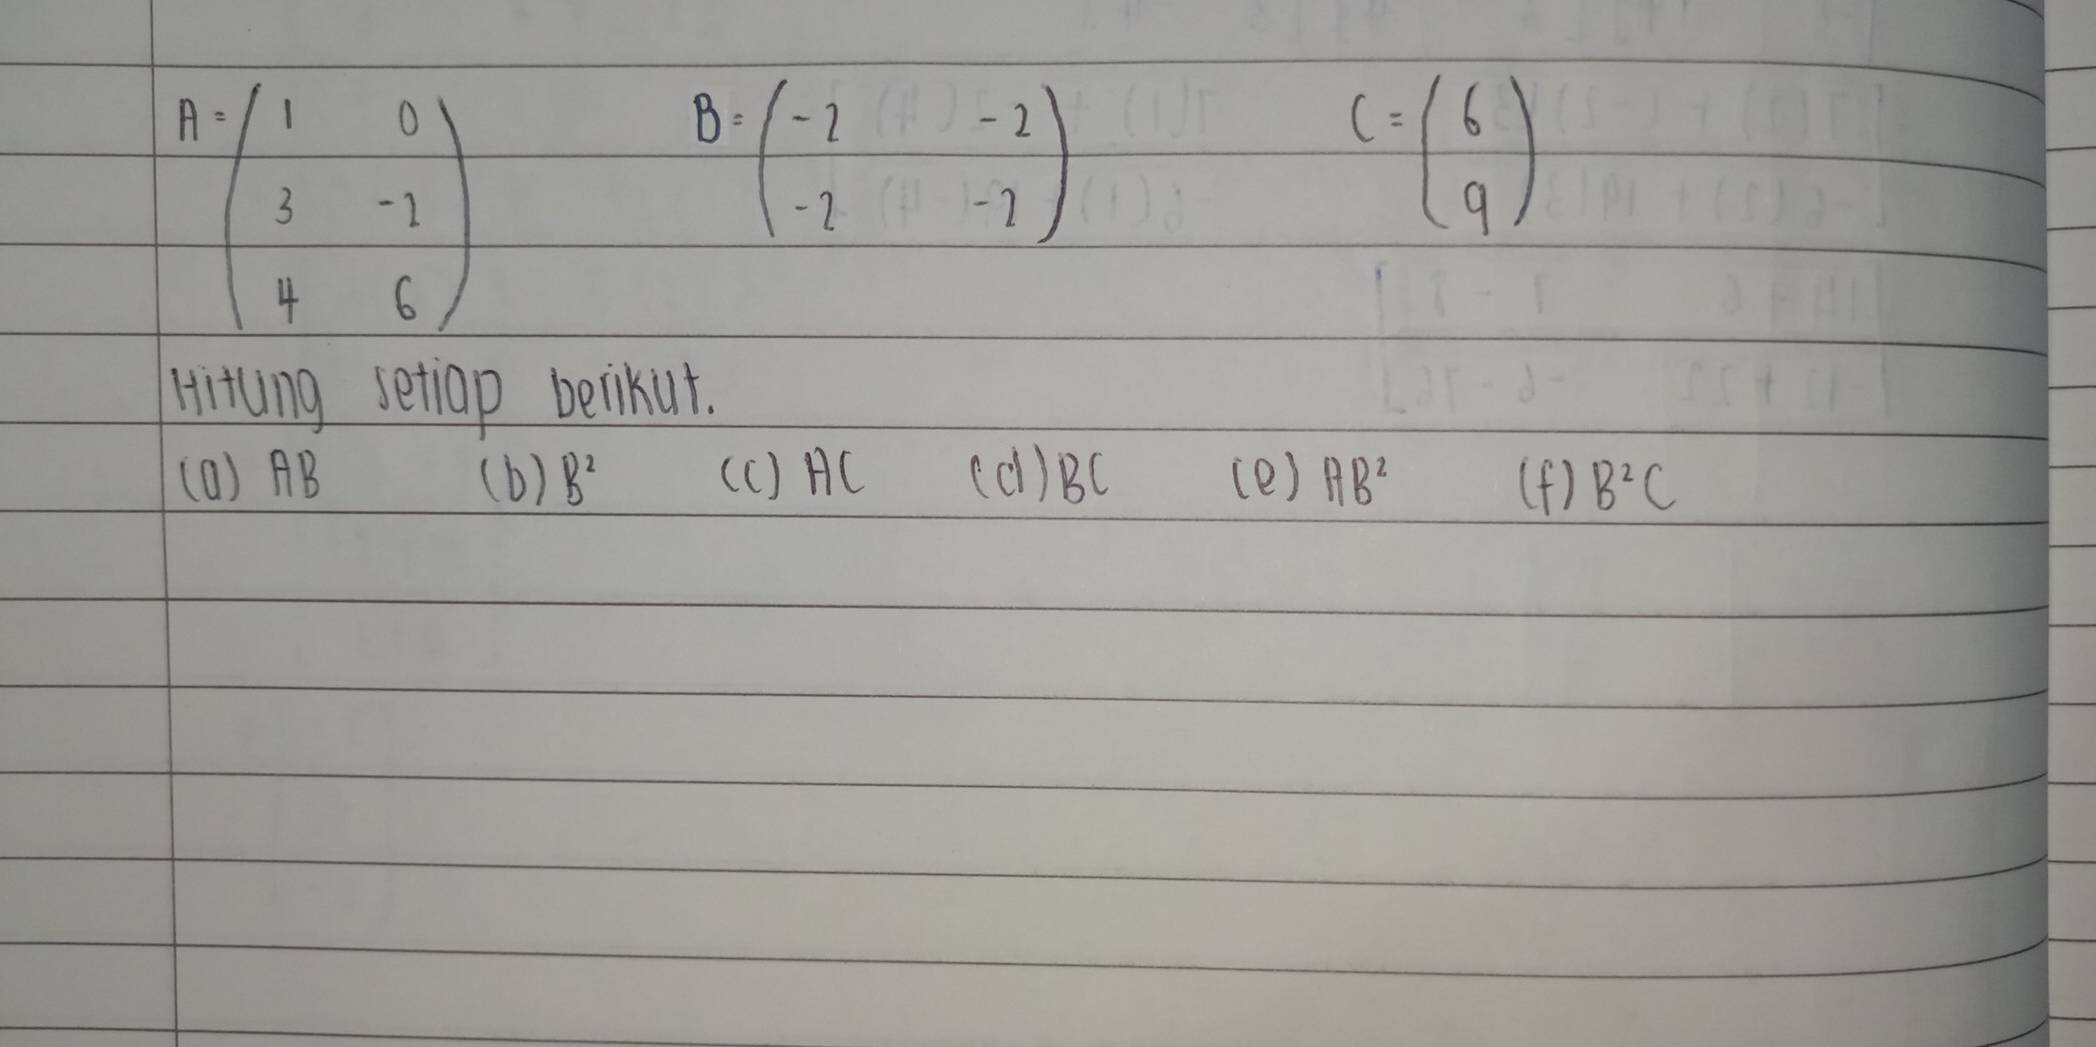 A = ( 1 0 ) B = ( -2 -2 ) C = ( 6 )
( 3 -2 ) ( -2 -2 ) ( 9 )
( 4 6 )
Hitung setiap berikut.
(a) AB (b) B² (c) AC (d) BC (e) AB² (f) B²C